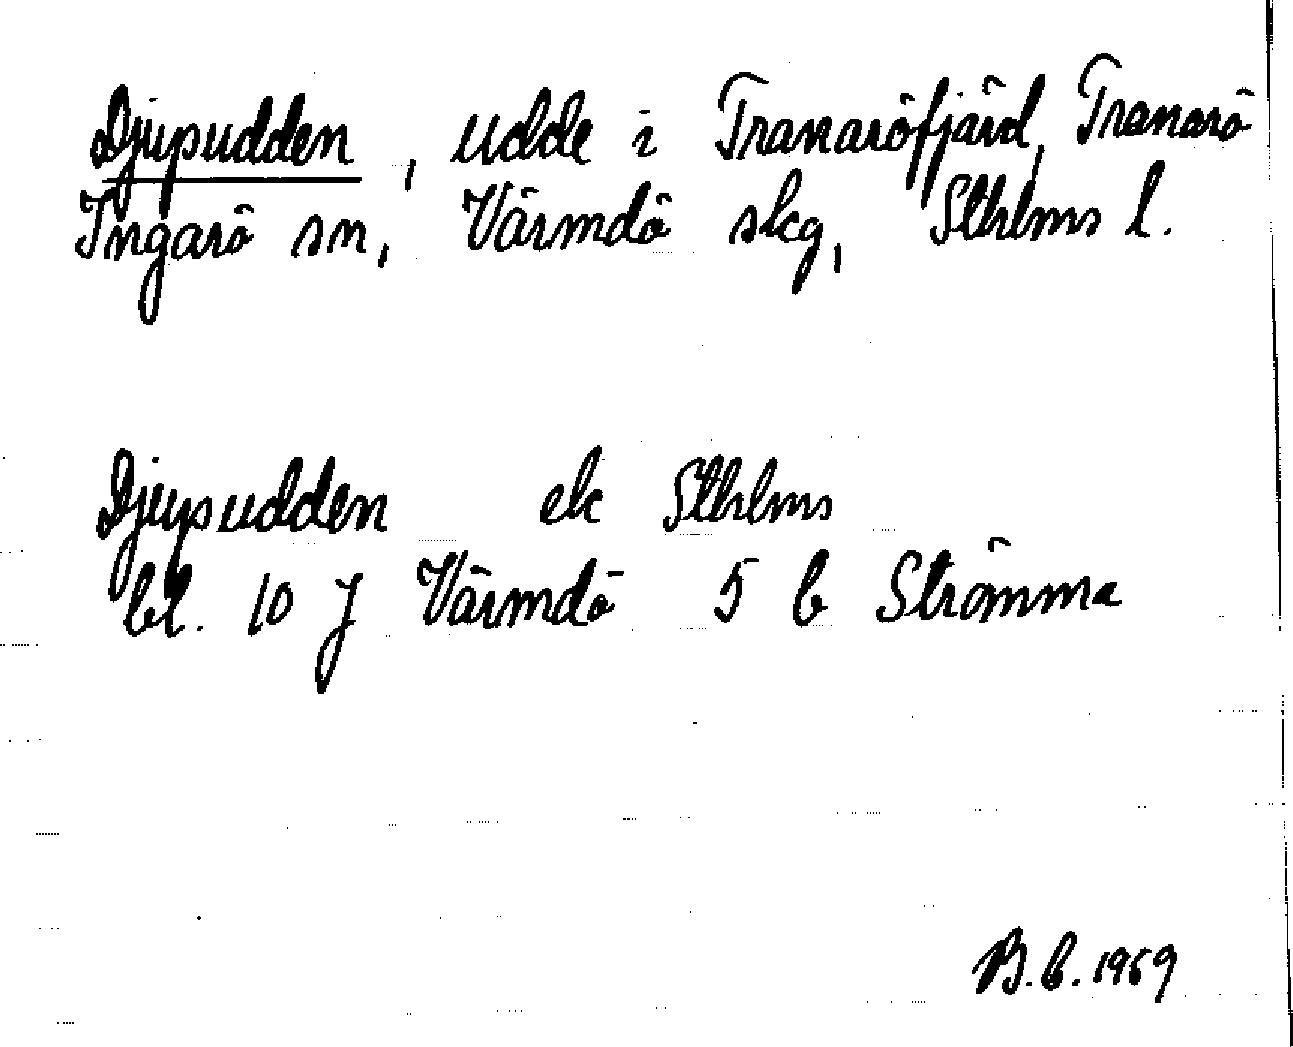 Djupudden, udde i Tranaröfjärd, Tranarö
Ingarö sn, Värmdö skg, Sthlms l.
Djupudden ek Sthlms
bl. 10 J Värmdö 5 b Strömma
B.B. 1969